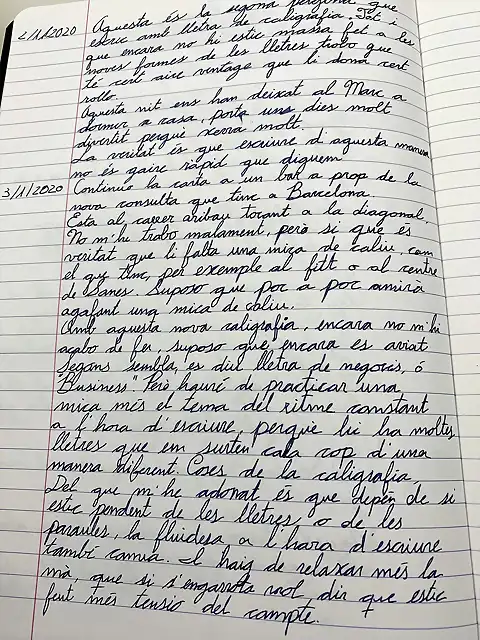 Aquesta és la segona pagina que
2/1/2020 escric amb lletra de caligrafia. Tot i
que encara no hi estic massa fet a les
noves formes de les lletres trobo que
té cert aire vintage que li dona cert
rollo.
Aquesta nit ens han deixat al Marc a
dormir a casa, porta uns dies molt
divertit perquè xerra molt.
La veritat és que escriure d'aquesta manera
no és gaire ràpid que diguem
3/1/2020 Continuo la carta a un bar a prop de la
nova consulta que tinc a Barcelona.
Esta al carrer aribau tocant a la diagonal.
No m'hi trobo malament, però si que és
veritat que li falta una mica de caliu, com
el que tinc, per exemple al fitt o al centre
de Sanes. Suposo que poc a poc anirà
agafant una mica de caliu.
Amb aquesta nova caligrafia, encara no m'hi
acabo de fer, suposo que encara es aviat
segons sembla, es diu lletra de negocis, ó
"Business". Però hauré de practicar una
mica més el tema del ritme constant
a l'hora d'escriure, perque hi ha moltes
lletres que em surten cada cop d'una
manera diferent. Coses de la caligrafia.
Del que m'he adonat és que depèn de si
estic pendent de les lletres, o de les
paraules, la fluidesa a l'hora d'escriure
també canvia. I haig de relaxar més la
mà, que si s'engarrota vol dir que estic
fent més tensió del compte.